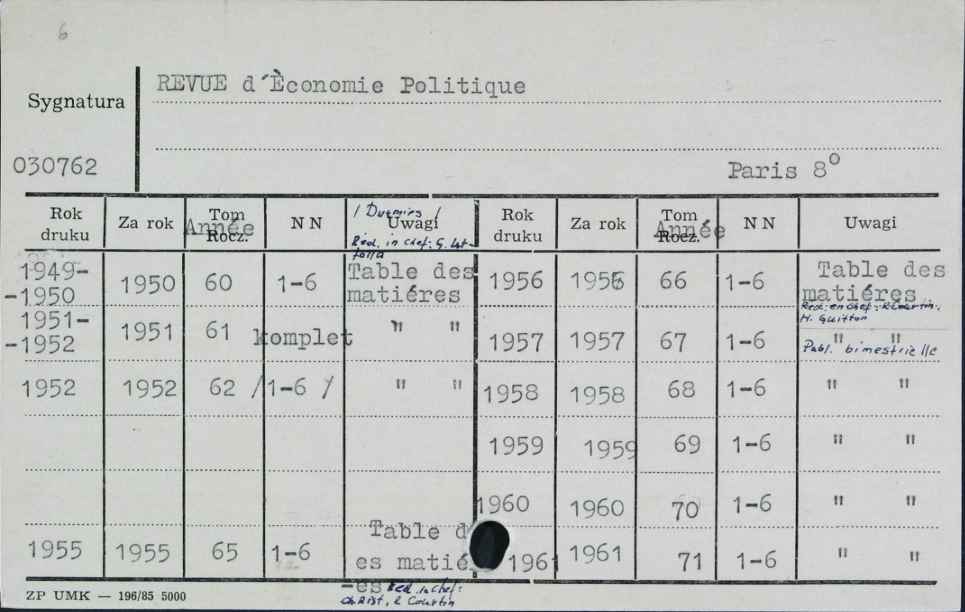 6
REVUE d´Èconomie Politique
Sygnatura
030762
Paris 8°
Rok druku Za rok Tom Rocz. Année N N Uwagi Rok druku Za rok Tom Rocz. Année N N Uwagi
Réd. in chef: G.
1949- 1950 60 1-6 Table des 1956 1956 66 1-6 Table des
-1950 matiéres matiéres
Réd. en chef: R. Courtin,
H. Guitton
1951- 1951 61 komplet " " 1957 1957 67 1-6 " "
-1952
Publ. bimestrielle
1952 1952 62 /1-6 / " " 1958 1958 68 1-6 " "
1959 1959 69 1-6 " "
1960 1960 70 1-6 " "
Table d
1955 1955 65 1-6 es matié 1961 1961 71 1-6 " "
-es Réd. in chef:
Courtin
ZP UMK — 196/85 5000